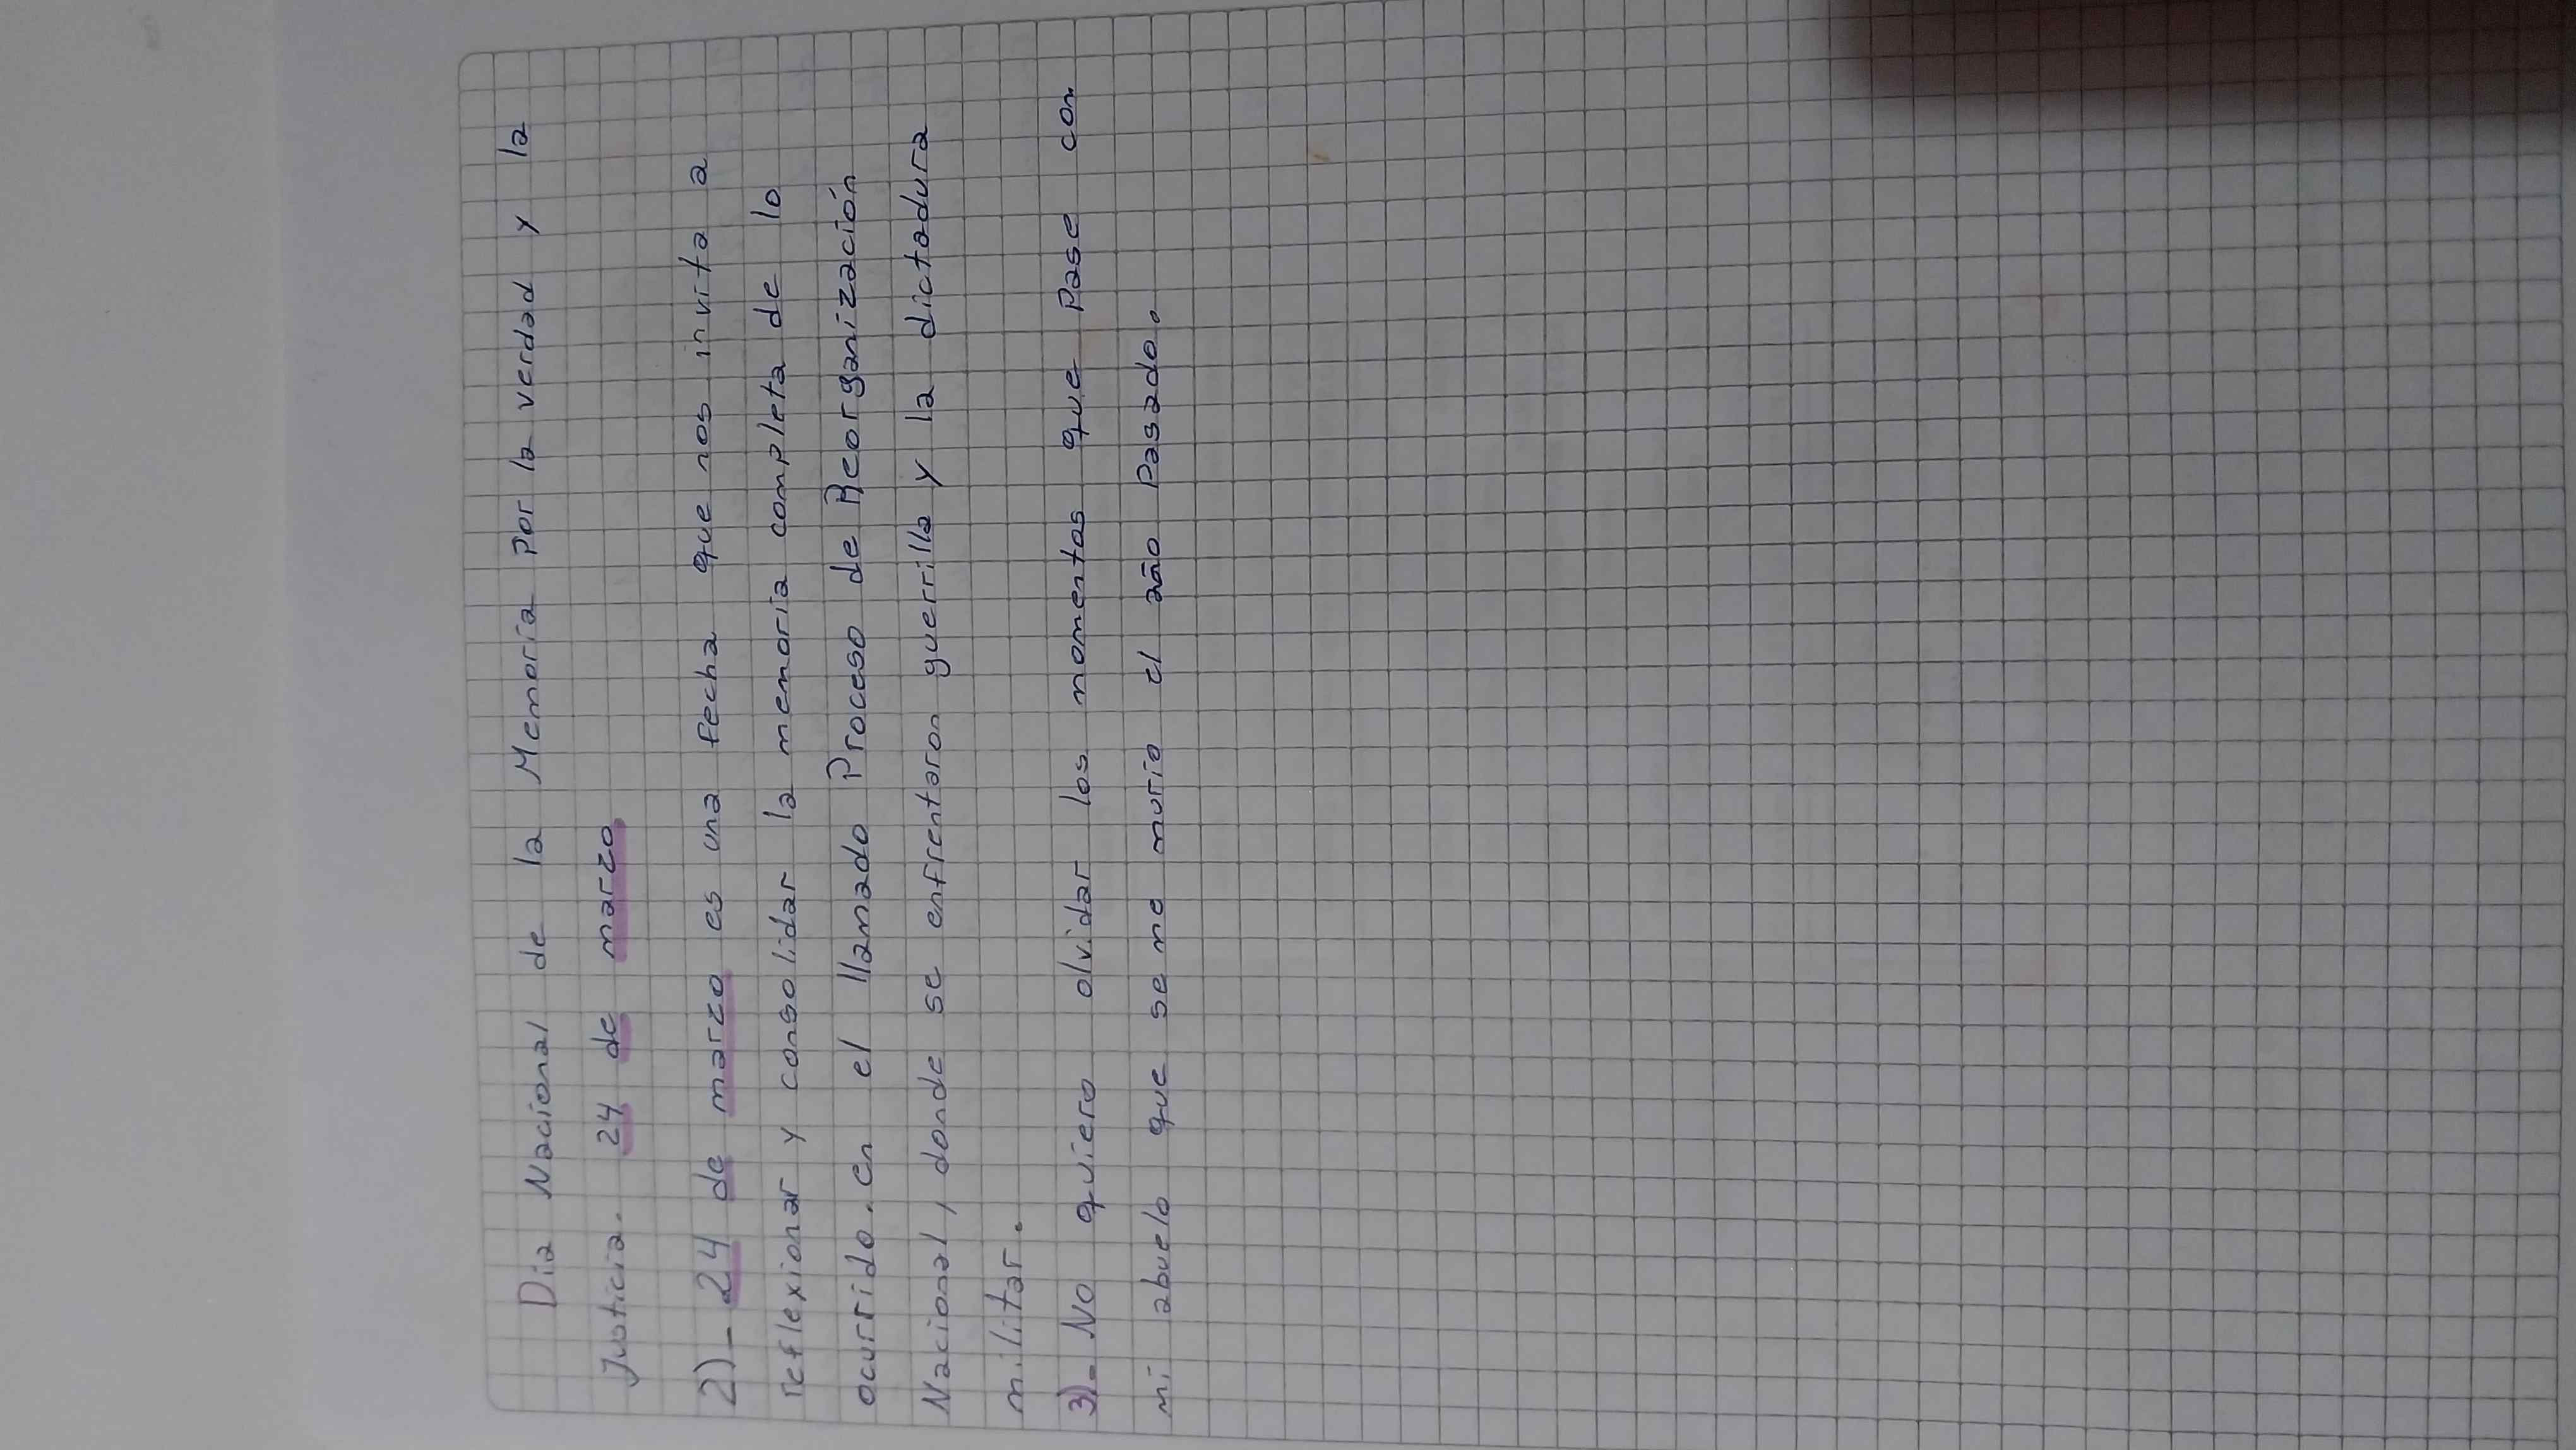 Dia Nacional de la Memoria Por la verdad y la
Justicia. 24 de marzo
2)- 24 de marzo es una fecha que nos invita a
reflexionar y consolidar la memoria completa de lo
ocurrido. en el llamado Proceso de Reorganización
Nacional, donde se enfrentaron guerrilla y la dictadura
militar.
3)- No quiero olvidar los momentos que Pase con
mi abuelo que se me murio el Pasado.